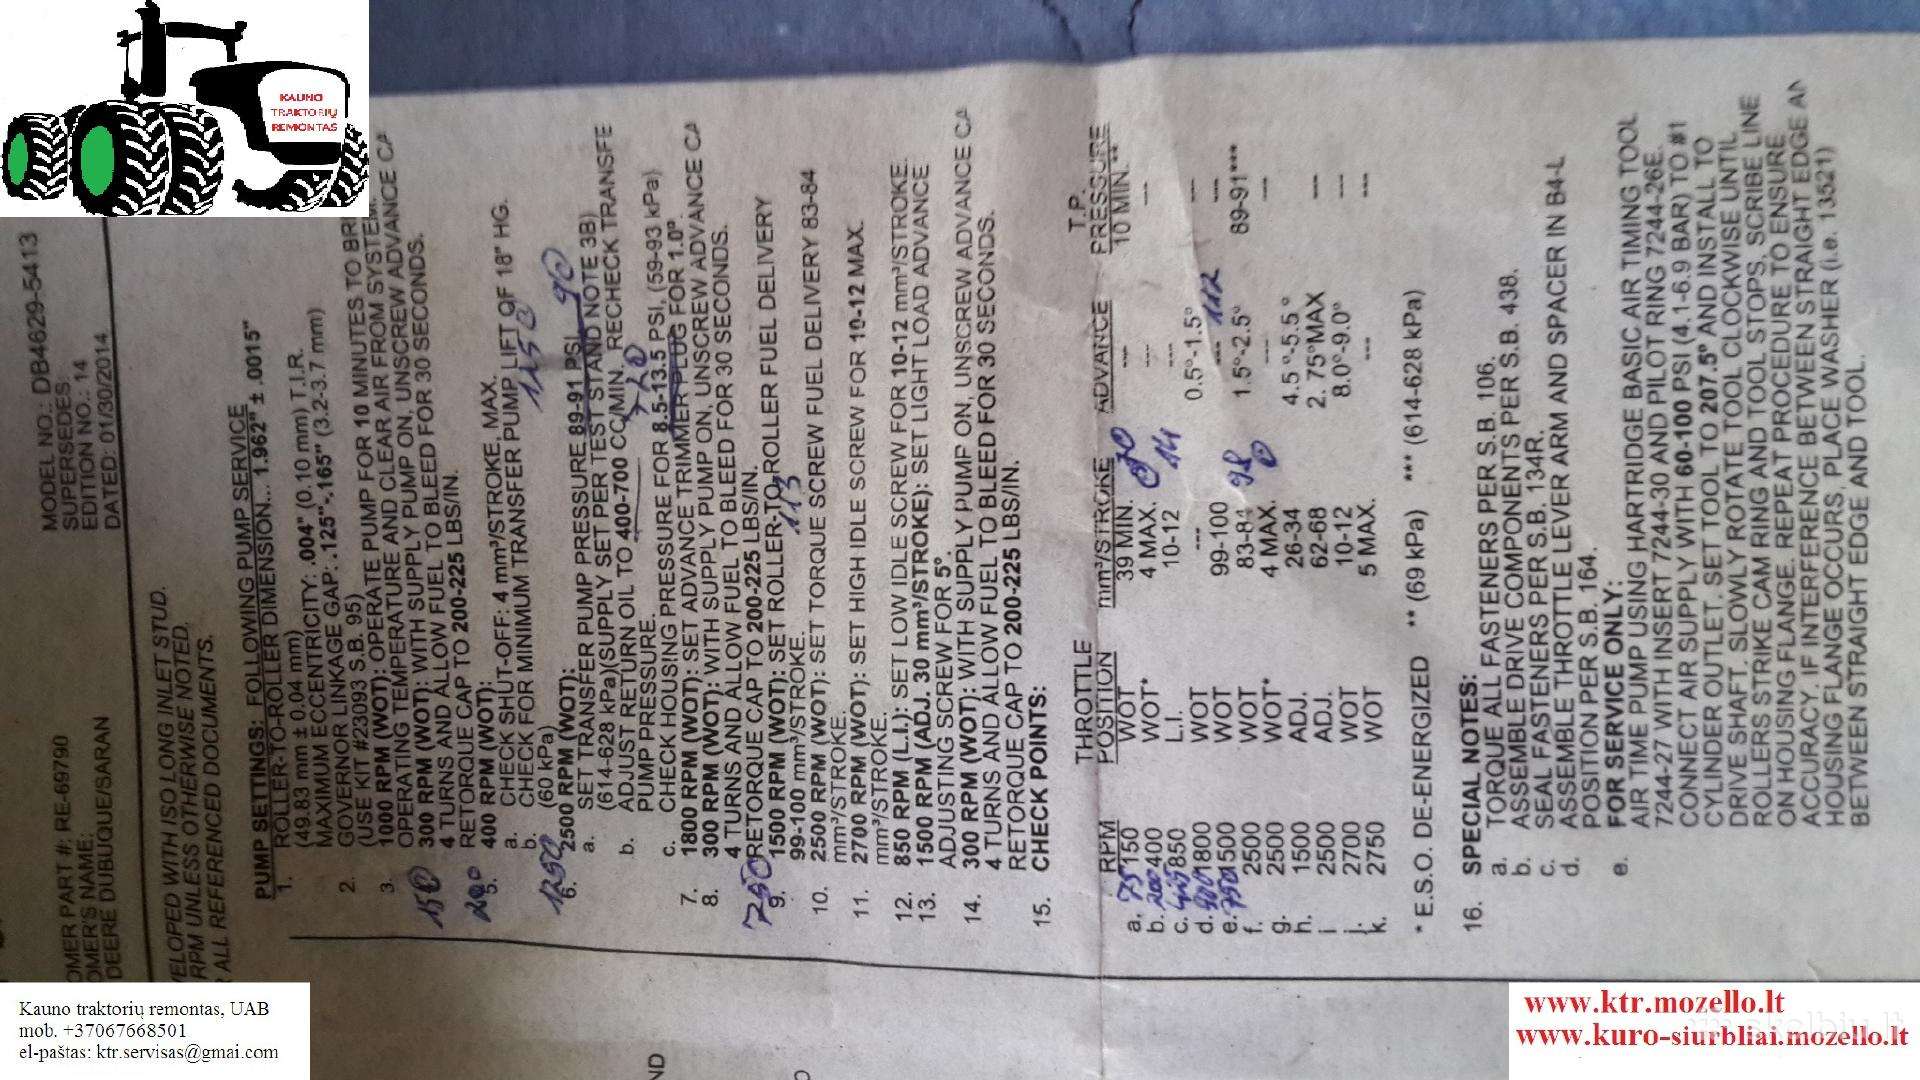 KAUNO
TRAKTORIŲ
REMONTAS
MODEL NO.: DB4629-5413
SUPERSEDES:
EDITION NO.: 14
DATED: 01/30/2014
OMER PART #: RE-69790
OMER'S NAME:
DEERE DUBUQUE/SARAN
VELOPED WITH ISO LONG INLET STUD.
RPM UNLESS OTHERWISE NOTED.
ALL REFERENCED DOCUMENTS.
PUMP SETTINGS: FOLLOWING PUMP SERVICE
1. ROLLER-TO-ROLLER DIMENSION... 1.962" ± .0015"
(49.83 mm ± 0.04 mm)
MAXIMUM ECCENTRICITY: .004" (0.10 mm) T.I.R.
2. GOVERNOR LINKAGE GAP: .125"-.165" (3.2-3.7 mm)
(USE KIT #23093 S.B. 95)
3. 1000 RPM (WOT): OPERATE PUMP FOR 10 MINUTES TO BRI
OPERATING TEMPERATURE AND CLEAR AIR FROM SYSTEM.
300 RPM (WOT): WITH SUPPLY PUMP ON, UNSCREW ADVANCE CA
4 TURNS AND ALLOW FUEL TO BLEED FOR 30 SECONDS.
RETORQUE CAP TO 200-225 LBS/IN.
150
200
5. 400 RPM (WOT):
a. CHECK SHUT-OFF: 4 mm³/STROKE, MAX.
b. CHECK FOR MINIMUM TRANSFER PUMP LIFT OF 18" HG.
(60 kPa)
1250
6. 2500 RPM (WOT):
a. SET TRANSFER PUMP PRESSURE 89-91 PSI 90
(614-628 kPa)(SUPPLY SET PER TEST STAND NOTE 3B)
b. ADJUST RETURN OIL TO 400-700 CC/MIN. RECHECK TRANSFE
PUMP PRESSURE.
c. CHECK HOUSING PRESSURE FOR 8.5-13.5 PSI, (59-93 kPa)
7. 1800 RPM (WOT): SET ADVANCE TRIMMER PLUG FOR 1.0°.
8. 300 RPM (WOT): WITH SUPPLY PUMP ON, UNSCREW ADVANCE CA
4 TURNS AND ALLOW FUEL TO BLEED FOR 30 SECONDS.
RETORQUE CAP TO 200-225 LBS/IN.
750
9. 1500 RPM (WOT): SET ROLLER-TO-ROLLER FUEL DELIVERY
99-100 mm³/STROKE. 113
10. 2500 RPM (WOT): SET TORQUE SCREW FUEL DELIVERY 83-84
mm³/STROKE.
11. 2700 RPM (WOT): SET HIGH IDLE SCREW FOR 10-12 MAX.
mm³/STROKE.
12. 850 RPM (L.I.): SET LOW IDLE SCREW FOR 10-12 mm³/STROKE.
13. 1500 RPM (ADJ. 30 mm³/STROKE): SET LIGHT LOAD ADVANCE
ADJUSTING SCREW FOR 5°.
14. 300 RPM (WOT): WITH SUPPLY PUMP ON, UNSCREW ADVANCE CA
4 TURNS AND ALLOW FUEL TO BLEED FOR 30 SECONDS.
RETORQUE CAP TO 200-225 LBS/IN.
15. CHECK POINTS:
THROTTLE T.P.
RPM POSITION mm³/STROKE ADVANCE PRESSURE
a. 75 150 WOT 39 MIN. --- 10 MIN. **
b. 200 400 WOT* 4 MAX. --- ---
c. 850 L.I. 10-12 14 ---
d. 1800 WOT --- 0.5°-1.5° ---
e. 750 1500 WOT 99-100 --- 112 ---
f. 2500 WOT 83-84 98 1.5°-2.5° 89-91***
g. 2500 WOT* 4 MAX. 0 --- ---
h. 1500 ADJ. 26-34 4.5°-5.5°
i 2500 ADJ. 62-68 2.75°MAX ---
j. 2700 WOT 10-12 8.0°-9.0° ---
k. 2750 WOT 5 MAX. ---
* E.S.O. DE-ENERGIZED ** (69 kPa) *** (614-628 kPa)
16. SPECIAL NOTES:
a. TORQUE ALL FASTENERS PER S.B. 106.
b. ASSEMBLE DRIVE COMPONENTS PER S.B. 438.
c. SEAL FASTENERS PER S.B. 134R.
d. ASSEMBLE THROTTLE LEVER ARM AND SPACER IN B4-L
POSITION PER S.B. 164.
e. FOR SERVICE ONLY:
AIR TIME PUMP USING HARTRIDGE BASIC AIR TIMING TOOL
7244-27 WITH INSERT 7244-30 AND PILOT RING 7244-26E.
CONNECT AIR SUPPLY WITH 60-100 PSI (4.1-6.9 BAR) TO #1
CYLINDER OUTLET. SET TOOL TO 207.5° AND INSTALL TO
DRIVE SHAFT. SLOWLY ROTATE TOOL CLOCKWISE UNTIL
ROLLERS STRIKE CAM RING AND TOOL STOPS. SCRIBE LINE
ON HOUSING FLANGE. REPEAT PROCEDURE TO ENSURE
ACCURACY. IF INTERFERENCE BETWEEN STRAIGHT EDGE AN
HOUSING FLANGE OCCURS, PLACE WASHER (i.e. 13521)
BETWEEN STRAIGHT EDGE AND TOOL.
ND
Kauno traktorių remontas, UAB
mob. +37067668501
el-paštas: ktr.servisas@gmai.com
www.ktr.mozello.lt
www.kuro-siurbliai.mozello.lt